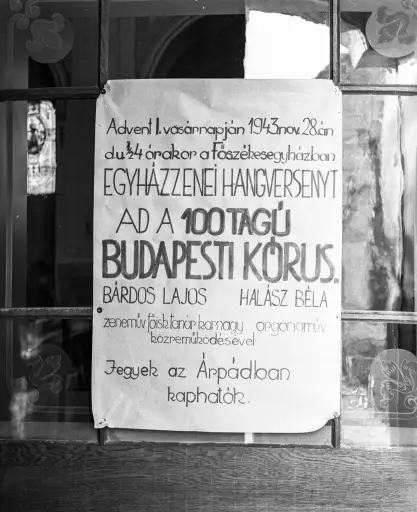 Advent I. vasárnapján 1943. nov. 28.án
du. ¾4 órakor a Főszékesegyházban
EGYHÁZZENEI HANGVERSENYT
AD A 100 TAGÚ
BUDAPESTI KÓRUS.
BÁRDOS LAJOS HALÁSZ BÉLA
zeneműv. főisk. tanár, karnagy orgonaműv.
közreműködésével
Jegyek az Árpádban
kaphatók.